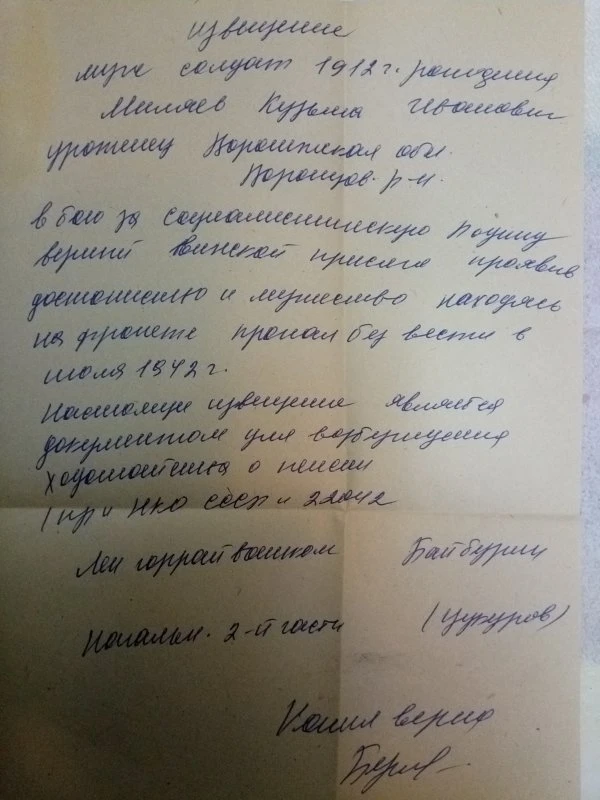 извещение
муж солдат 1912 г. рождения
Миляев Кузьма Иванович
уроженец Воронежская обл.
Воронцов. р-н.
в бою за социалистическую Родину
верный воинской присяге проявив
и мужество находясь
на фронте пропал без вести в
июля 1942 г.
Настоящее извещение является
документом для возбуждения
ходатайства о пенсии
(пр и НКО СССР н 22042
Лен горрайвоенком Байбурин
Начальн. 2-й части (Цукуров)
Копия верна